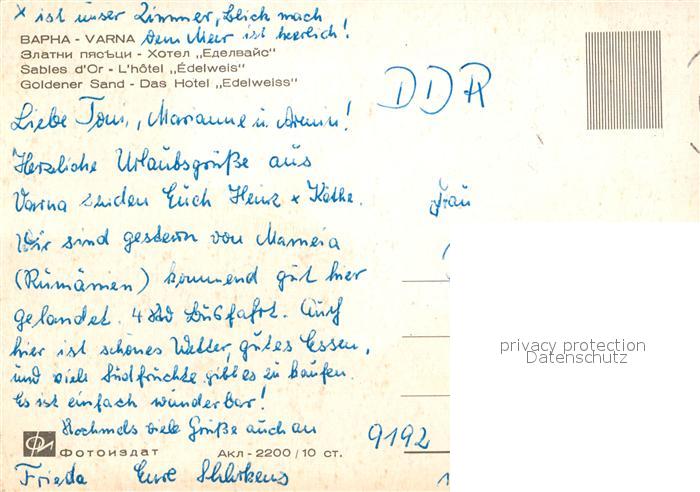 x ist unser Zimmer, Blick nach
dem Meer ist herrlich!
ВАРНА - VARNA
Златни пясъци - Хотел „Еделвайс“
Sables d'Or - L'hôtel „Édelweis“
Goldener Sand - Das Hotel „Edelweiss“
DDR
Liebe Toni, Marianne u. Armin!
Herzliche Urlaubsgrüße aus
Varna senden Euch Heinz x Käthe.
Frau
Wir sind gestern von Mameia
(Rumänien) kommend gut hier
gelandet. 4 Busfahrt. Auch
hier ist schönes Wetter, gutes Essen,
und viele Südfrüchte gibt es zu kaufen.
Es ist einfach wunderbar!
Nochmals viele Grüße auch an
Фотоиздат Акл - 2200 / 10 ст.
9192
Frieda Eure
privacy protection
Datenschutz